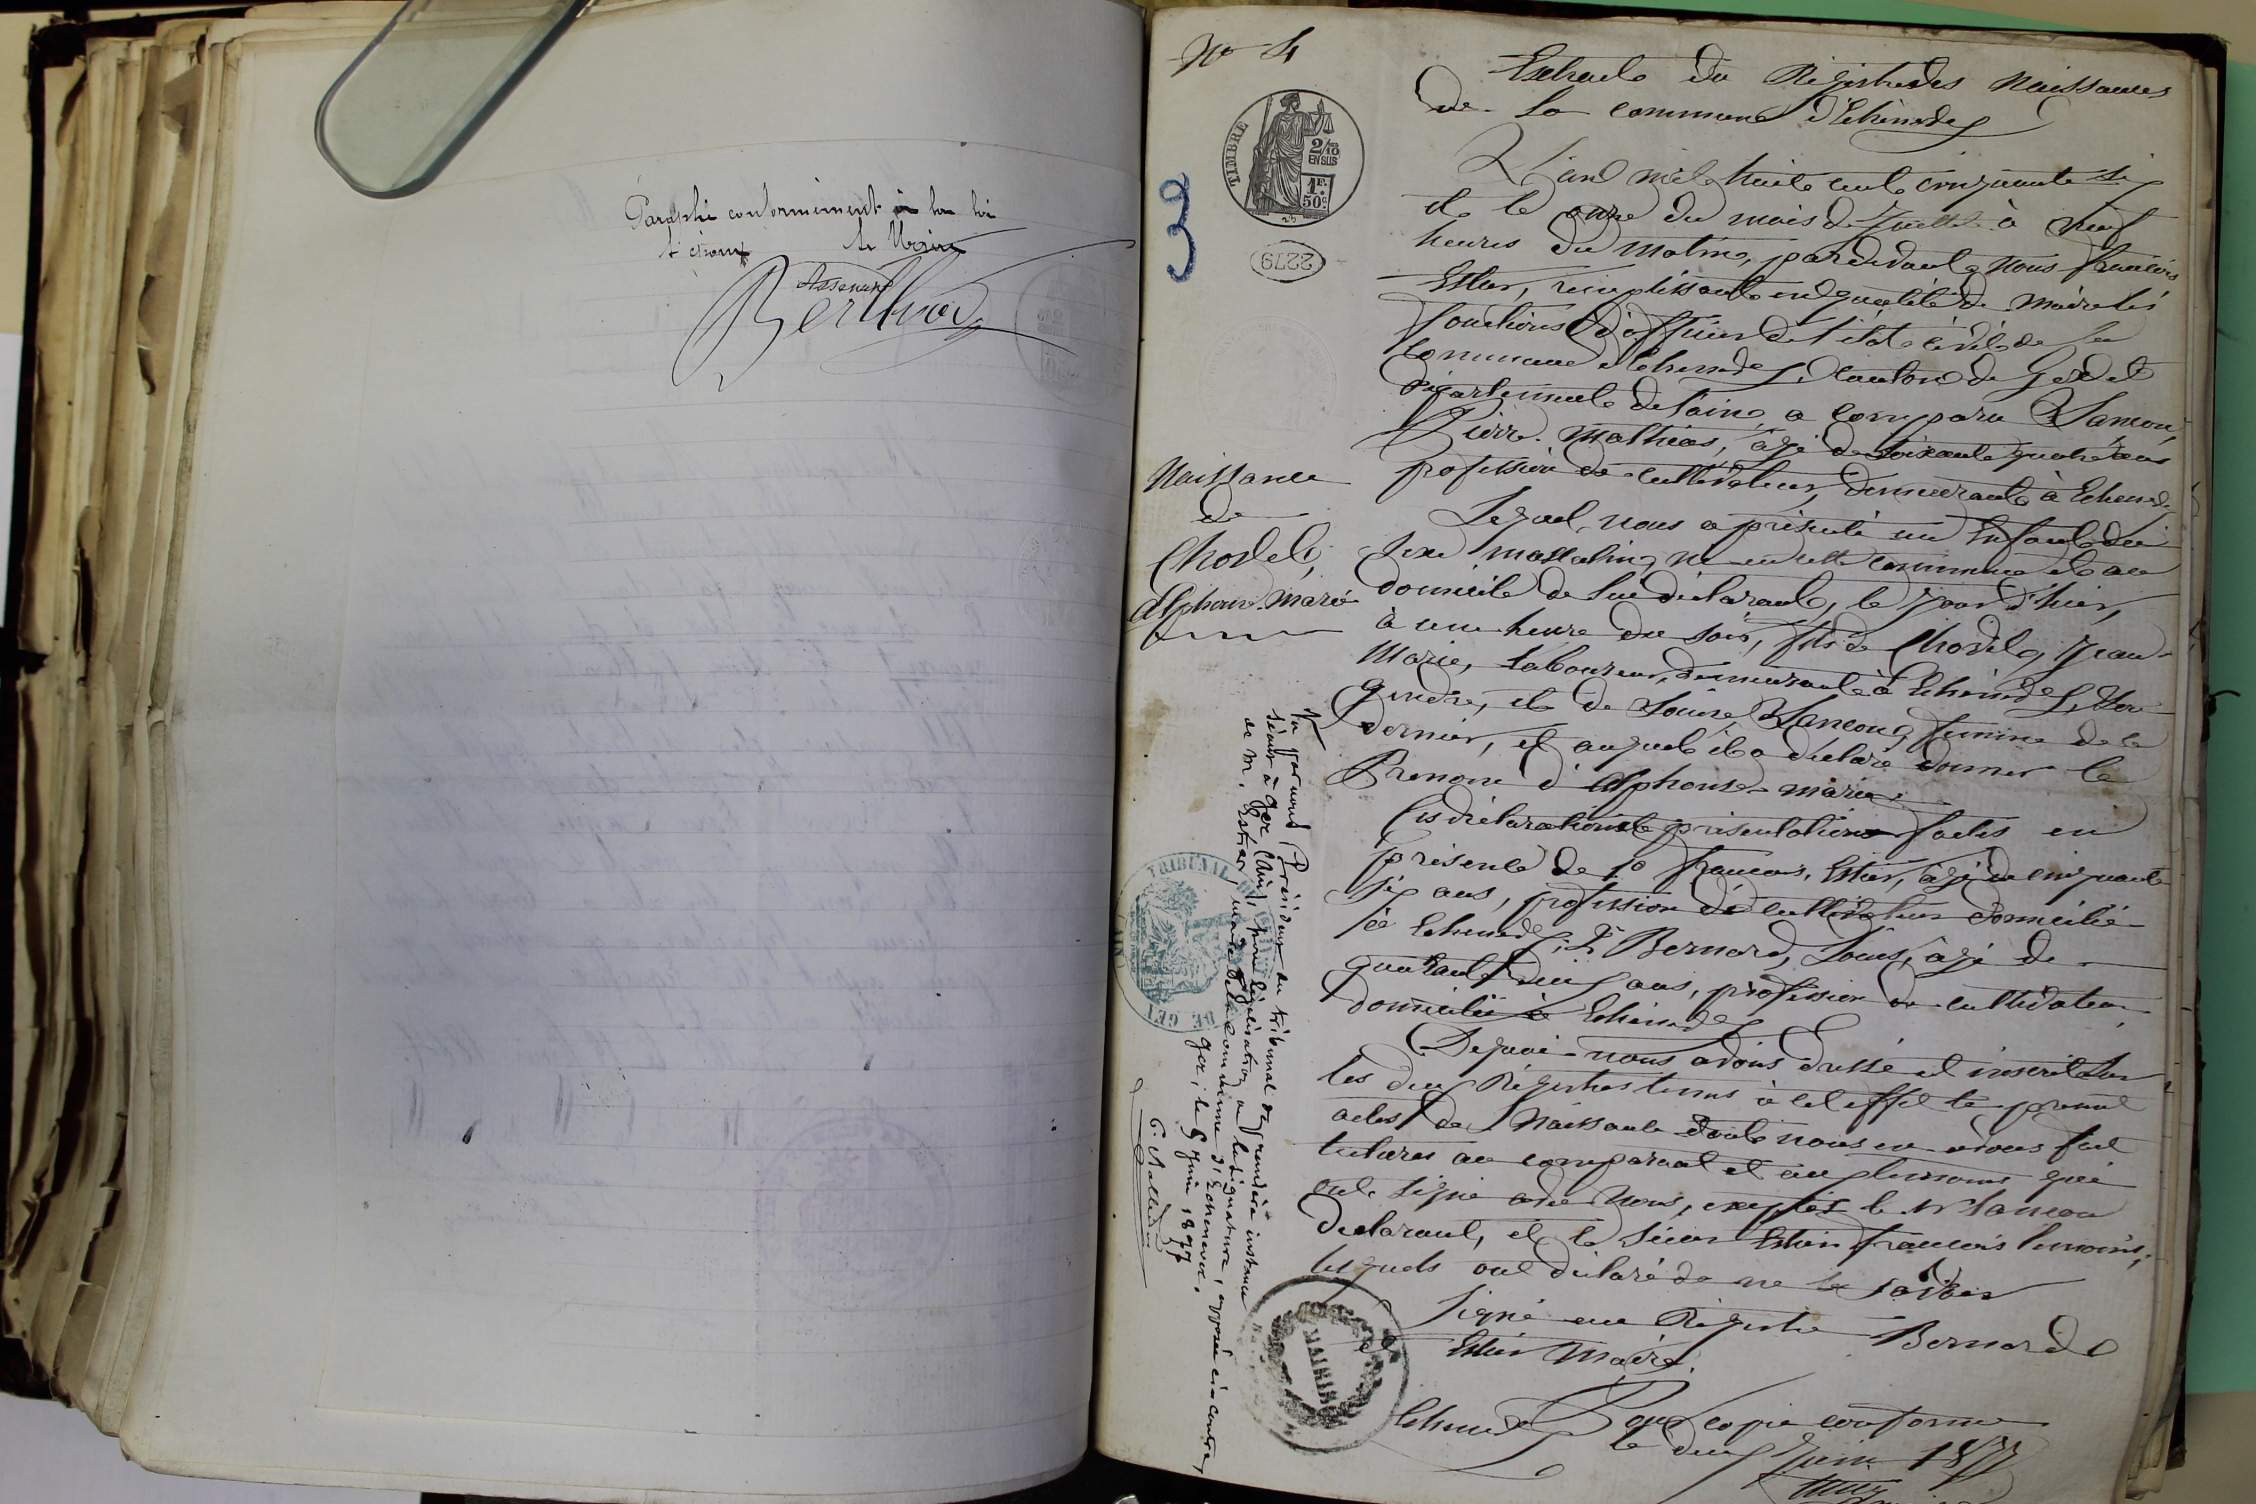 Paraphé conformément à la loi
Le Maire
Berthod
No 4
TIMBRE
2/10
EN SUS
1F.
50c.
2279
3
Extrait du Régistre des Naissances
de la commune d'Echenevex
L'an mil huit cent cinquante six
et le onze du mois de Juillet à neuf
heures du matin, pardevant nous françois
Estier, remplissant en qualité de maire les
fonctions d'officier de l'état civil de la
commune d'Echenevex, canton de Gex et
département de l'ain, a comparu Lançon,
Pierre-Mathieu, âgé de soixante quatre ans
profession de cultivateur, demeurant à Echenevex
Lequel nous a présenté un Enfant du
sexe masculin, né en cette commune et au
domicile de lui déclarant, le jour d'hier,
à une heure du soir, fils de Chodel, Jean-
Marie, laboureur, demeurant à Echenevex, son
gendre, et de Louise Lançon, femme de ce
dernier, et auquel il a déclaré donner le
Prenom d'Alphonse-marie.
Ces déclaration et présentation faites en
présence de 1o françois Estier, âgé de cinquante
six ans, profession de cultivateur domicilié
à Echenevex, 2o Bernard, Louis, âgé de
quarante deux ans, profession de cultivateur
domicilié à Echenevex
De quoi nous avons dressé et inscrit sur
les deux Régistres tenus à cet effet le présent
acte de Naissance dont nous en avons fait
lecture au comparant et aux témoins qui
ont signé avec nous, excepté le Sr Lançon
déclarant, et le sieur Estier françois témoin,
lesquels ont déclaré de ne le savoir
Signé au Régistre Bernard
et Estier Maire.
Pour copie conforme
Echenevex le deux Juin 1877
Naissance
de
Chodel,
Alphonse-Marie
Vu par nous Président du tribunal de première instance
séant à Gex (Ain), pour légalisation de la signature, apposée ci-contre,
de M. Estier, maire de la commune d'Echenevex.
Gex, le 5 Juin 1877
TRIBUNAL DE
DE GEX
(AIN)
MAIRIE